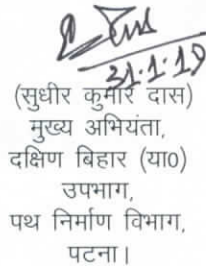 31.1.19
(सुधीर कुमार दास)
मुख्य अभियंता,
दक्षिण बिहार (या0)
उपभाग,
पथ निर्माण विभाग,
पटना।